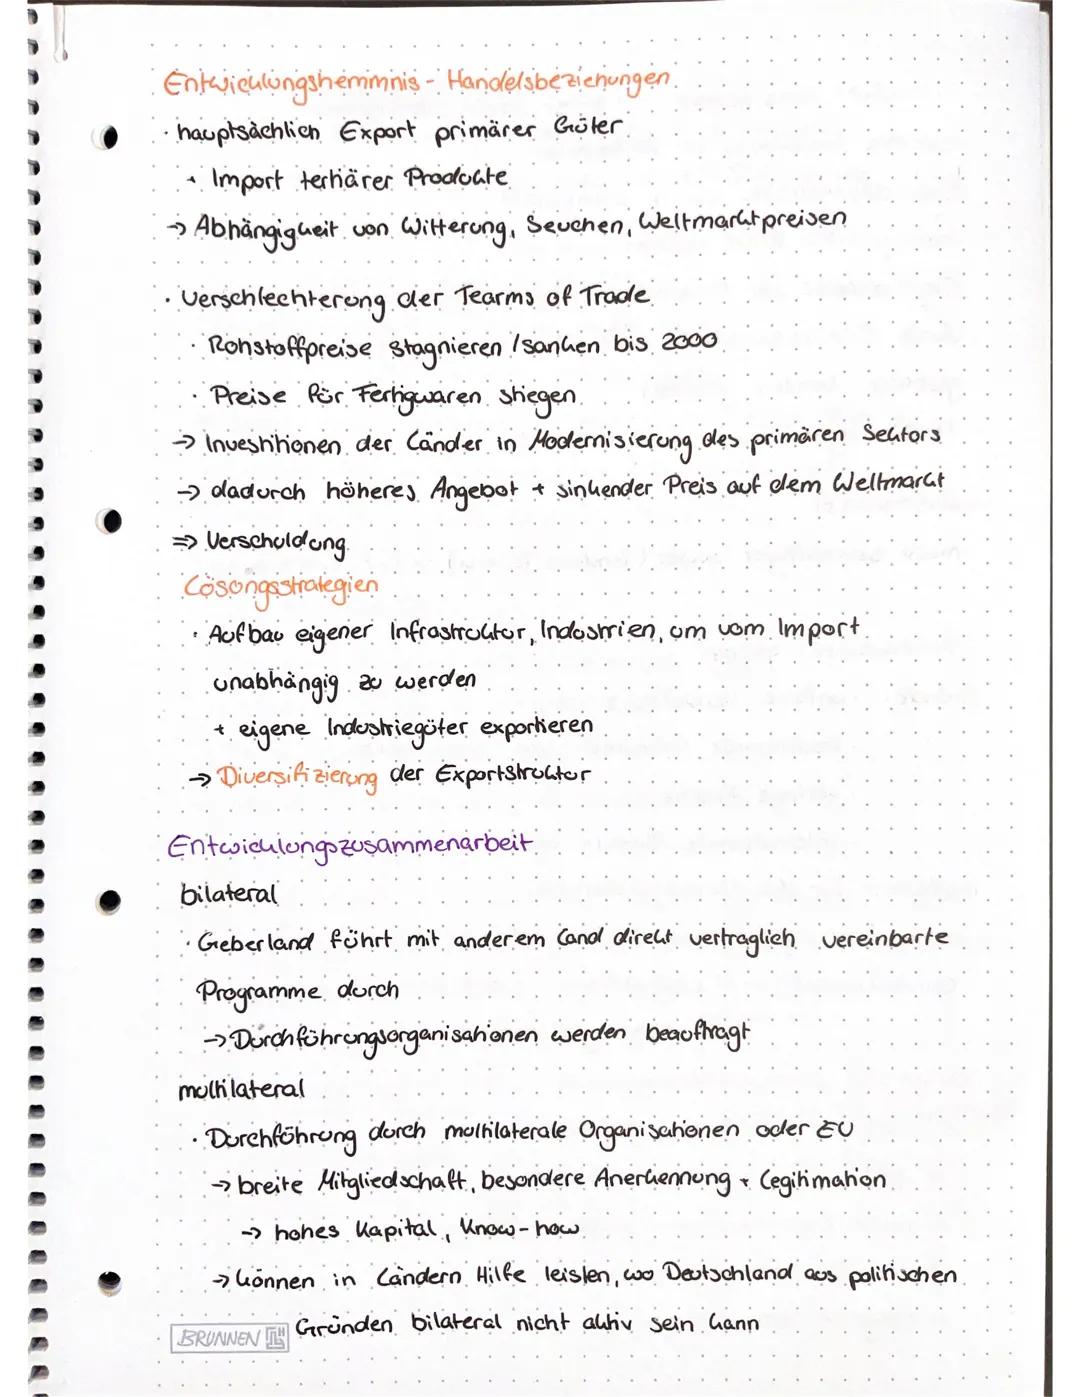 Entwicklungshemmnis - Handelsbeziehungen
· hauptsächlich Export primärer Güter
+ Import tertiärer Produkte
→ Abhängigkeit von Witterung, Seuchen, Weltmarktpreisen
· Verschlechterung der Tearms of Trade
· Rohstoffpreise stagnieren / sanken bis 2000
· Preise für Fertigwaren stiegen
→ Investitionen der Länder in Modernisierung des primären Sektors
→ dadurch höheres Angebot + sinkender Preis auf dem Weltmarkt
⇒ Verschuldung
Lösungsstrategien
· Aufbau eigener Infrastruktur, Industrien, um vom Import
unabhängig zu werden
+ eigene Industriegüter exportieren
→ Diversifizierung der Exportstruktur
Entwicklungszusammenarbeit
bilateral
· Geberland führt mit anderem Land direkt vertraglich vereinbarte
Programme durch
→ Durchführungsorganisationen werden beauftragt
multilateral
· Durchführung durch multilaterale Organisationen oder EU
→ breite Mitgliedschaft, besondere Anerkennung + Legitimation
→ hohes Kapital, Know-how
→ können in Ländern Hilfe leisten, wo Deutschland aus politischen
Gründen bilateral nicht aktiv sein kann
BRUNNEN